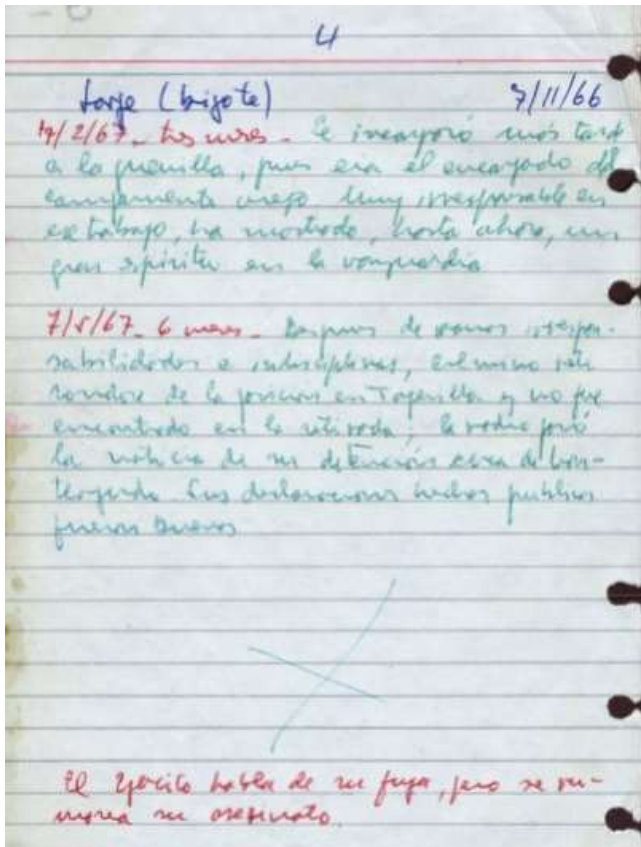 4
Jorge (bigote) 7/11/66
7/2/67 - tres meses - Se incorporó más tarde
a la guerrilla, pues era el encargado del
campamento viejo. Muy irresponsable en
ese trabajo, ha mostrado, hasta ahora, un
gran espíritu en la vanguardia
7/5/67 - 6 meses - Después de varias irrespon-
sabilidades e indisciplinas, culminó
de la posición en Taperillas y no fue
encontrado en la retirada; la radio
la noticia de su detención cerca de Mon-
teagudo. Sus declaraciones hechas públicas
fueron buenas
El ejército habla de su fuga, pero se ru-
morea su asesinato.